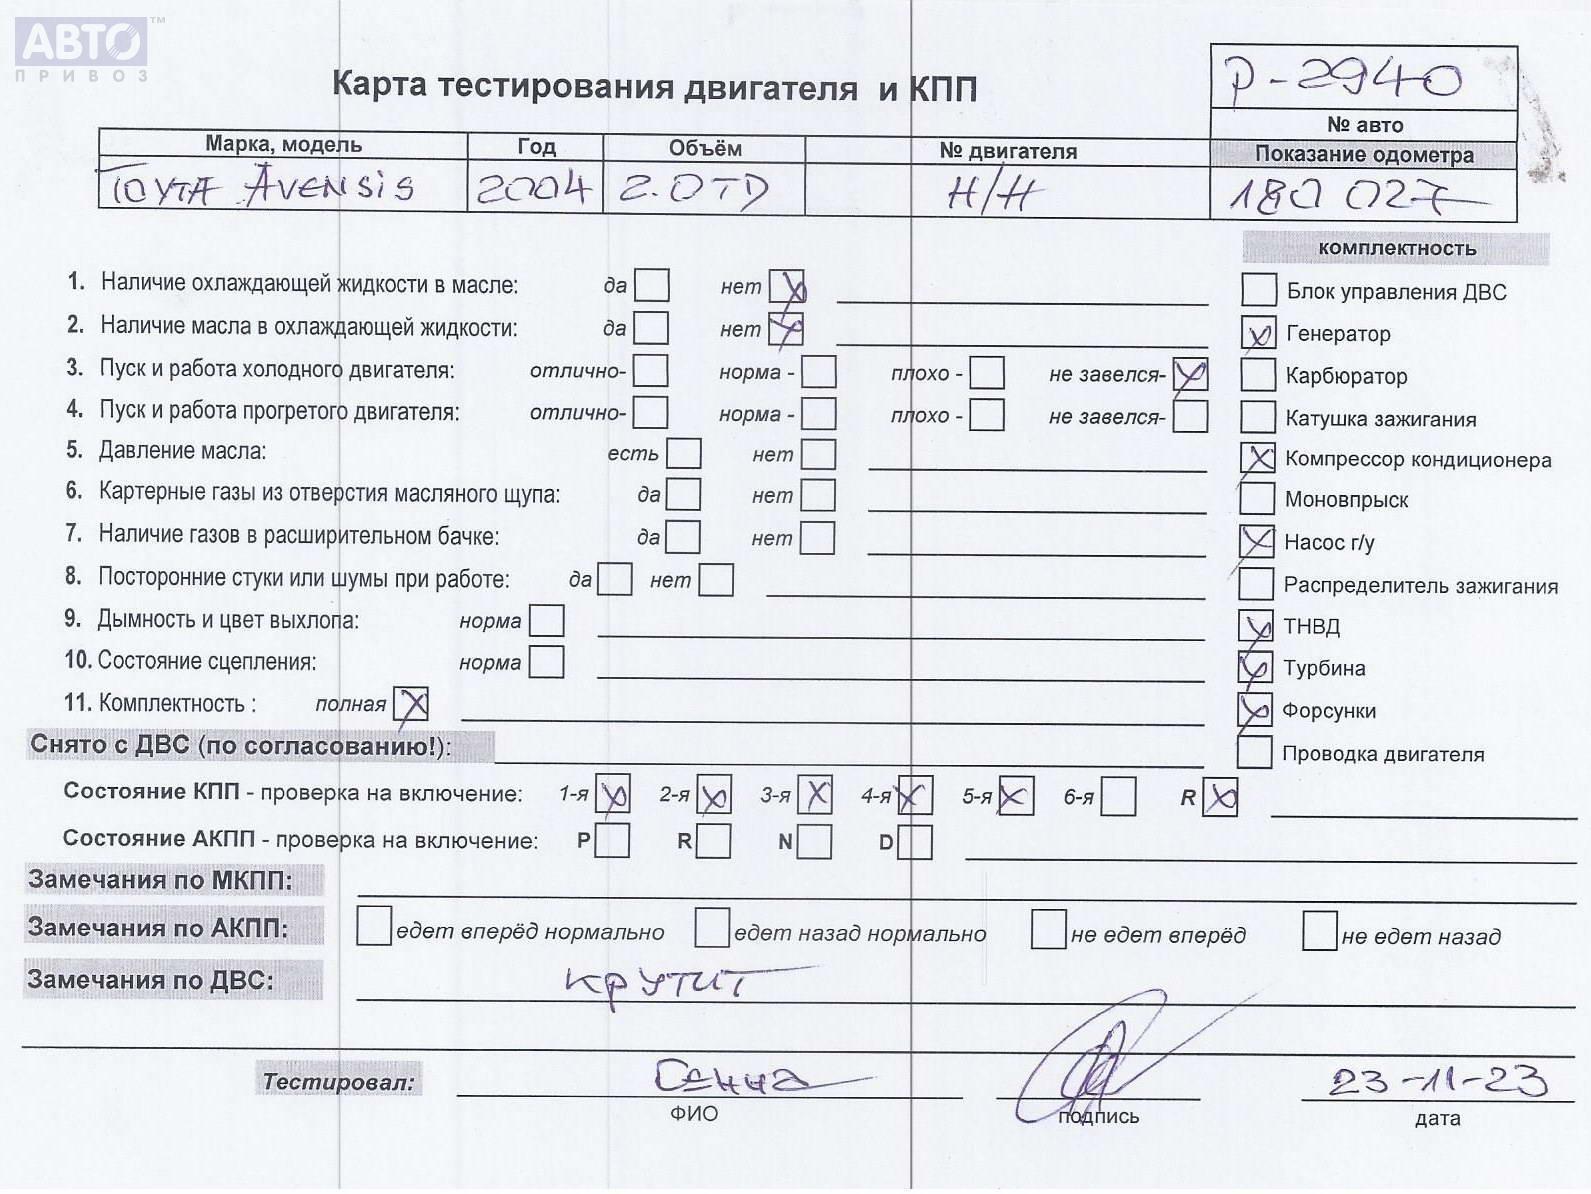 АВТО™
ПРИВОЗ
Карта тестирования двигателя и КПП
P-2940
№ авто
Марка, модель Год Объём № двигателя Показание одометра
TOYTA AVENSIS 2004 2.0TD Н/Н 180 027
комплектность
1. Наличие охлаждающей жидкости в масле: да нет X
Блок управления ДВС
2. Наличие масла в охлаждающей жидкости: да нет X
X Генератор
3. Пуск и работа холодного двигателя: отлично- норма - плохо - не завелся- X
Карбюратор
4. Пуск и работа прогретого двигателя: отлично- норма - плохо - не завелся-
Катушка зажигания
5. Давление масла: есть нет
X Компрессор кондиционера
6. Картерные газы из отверстия масляного щупа: да нет
Моновпрыск
7. Наличие газов в расширительном бачке: да нет
X Насос г/у
8. Посторонние стуки или шумы при работе: да нет
Распределитель зажигания
9. Дымность и цвет выхлопа: норма
X ТНВД
10. Состояние сцепления: норма
X Турбина
11. Комплектность : полная X
X Форсунки
Снято с ДВС (по согласованию!):
Проводка двигателя
Состояние КПП - проверка на включение: 1-я X 2-я X 3-я X 4-я X 5-я X 6-я R X
Состояние АКПП - проверка на включение: P R N D
Замечания по МКПП:
Замечания по АКПП: едет вперёд нормально едет назад нормально не едет вперёд не едет назад
Замечания по ДВС: крутит
Тестировал: Сенна 23-11-23
ФИО подпись дата